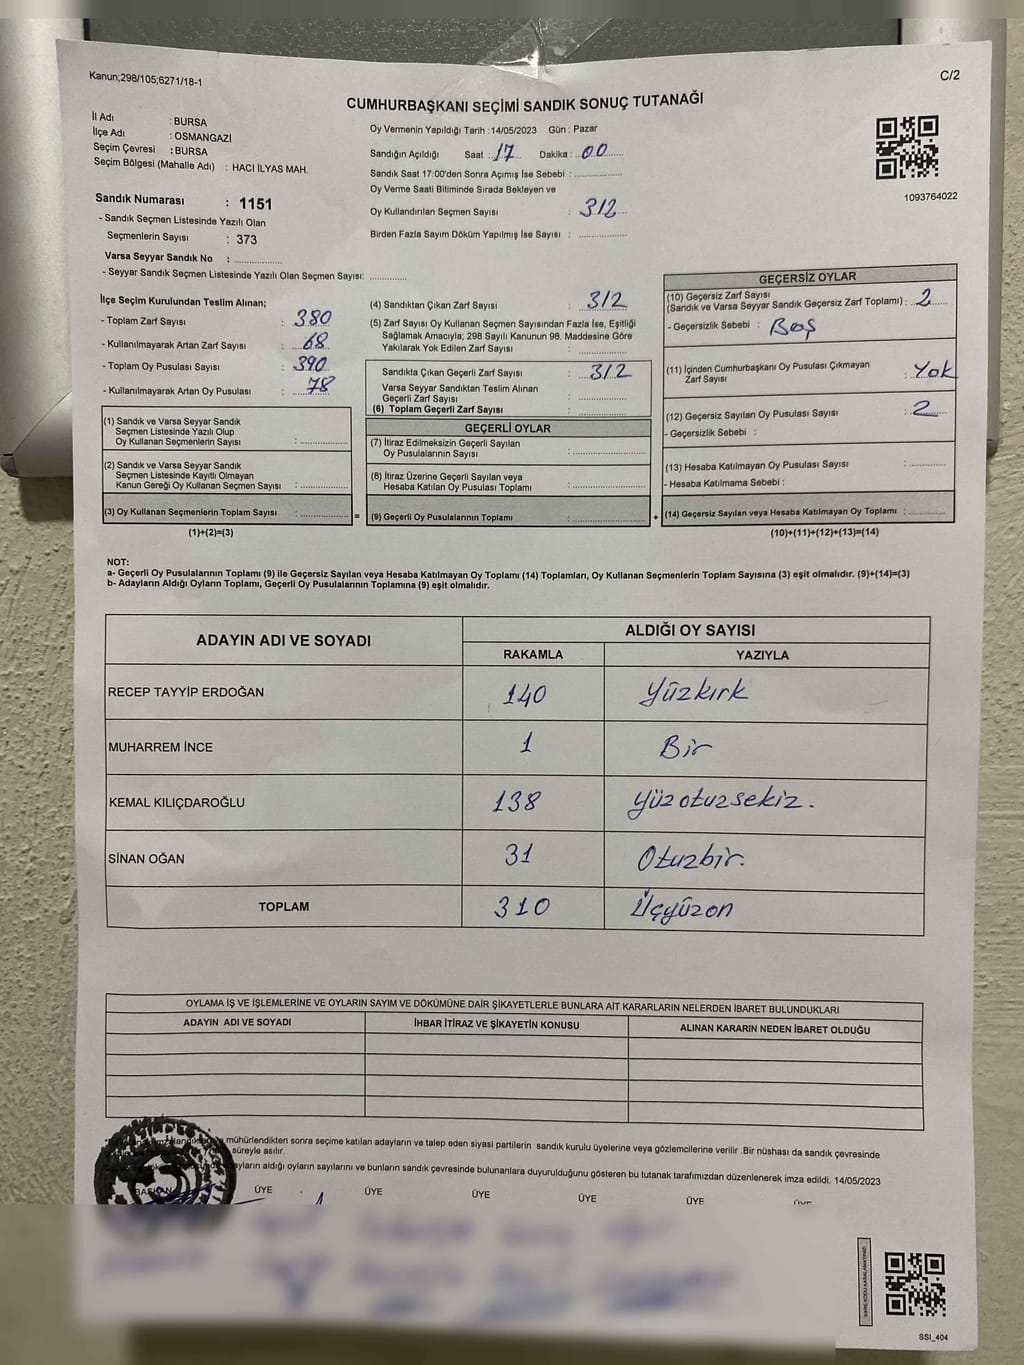 Kanun;298/105;6271/18-1
C/2
CUMHURBAŞKANI SEÇİMİ SANDIK SONUÇ TUTANAĞI
İl Adı : BURSA
İlçe Adı : OSMANGAZI
Seçim Çevresi : BURSA
Seçim Bölgesi (Mahalle Adı) : HACI İLYAS MAH.
Sandık Numarası : 1151
- Sandık Seçmen Listesinde Yazılı Olan
Seçmenlerin Sayısı : 373
Varsa Seyyar Sandık No : ...............
- Seyyar Sandık Seçmen Listesinde Yazılı Olan Seçmen Sayısı: ............
Oy Vermenin Yapıldığı Tarih : 14/05/2023 Gün : Pazar
Sandığın Açıldığı Saat : 17 Dakika : 00
Sandık Saat 17:00'den Sonra Açımış İse Sebebi : ...............
Oy Verme Saati Bitiminde Sırada Bekleyen ve
Oy Kullandırılan Seçmen Sayısı : 312
Birden Fazla Sayım Döküm Yapılmış İse Sayısı : ...............
1093764022
İlçe Seçim Kurulundan Teslim Alınan;
- Toplam Zarf Sayısı : 380
- Kullanılmayarak Artan Zarf Sayısı : 68
- Toplam Oy Pusulası Sayısı : 390
- Kullanılmayarak Artan Oy Pusulası : 78
(1) Sandık ve Varsa Seyyar Sandık
Seçmen Listesinde Yazılı Olup
Oy Kullanan Seçmenlerin Sayısı : ...............
(2) Sandık ve Varsa Seyyar Sandık
Seçmen Listesinde Kayıtlı Olmayan
Kanun Gereği Oy Kullanan Seçmen Sayısı : ...............
(3) Oy Kullanan Seçmenlerin Toplam Sayısı : ............... =
(1)+(2)=(3)
(4) Sandıktan Çıkan Zarf Sayısı : 312
(5) Zarf Sayısı Oy Kullanan Seçmen Sayısından Fazla İse, Eşitliği
Sağlamak Amacıyla; 298 Sayılı Kanunun 98. Maddesine Göre
Yakılarak Yok Edilen Zarf Sayısı : ...............
Sandıkta Çıkan Geçerli Zarf Sayısı : 312
Varsa Seyyar Sandıktan Teslim Alınan
Geçerli Zarf Sayısı : ...............
(6) Toplam Geçerli Zarf Sayısı : ...............
GEÇERLİ OYLAR
(7) İtiraz Edilmeksizin Geçerli Sayılan
Oy Pusulalarının Sayısı : ...............
(8) İtiraz Üzerine Geçerli Sayılan veya
Hesaba Katılan Oy Pusulası Toplamı : ...............
(9) Geçerli Oy Pusulalarının Toplamı : ............... +
GEÇERSİZ OYLAR
(10) Geçersiz Zarf Sayısı
(Sandık ve Varsa Seyyar Sandık Geçersiz Zarf Toplamı) : 2
- Geçersizlik Sebebi : Boş
(11) İçinden Cumhurbaşkanı Oy Pusulası Çıkmayan
Zarf Sayısı : Yok
(12) Geçersiz Sayılan Oy Pusulası Sayısı : 2
- Geçersizlik Sebebi :
(13) Hesaba Katılmayan Oy Pusulası Sayısı : ............
- Hesaba Katılmama Sebebi :
(14) Geçersiz Sayılan veya Hesaba Katılmayan Oy Toplamı : ............
(10)+(11)+(12)+(13)=(14)
NOT:
a- Geçerli Oy Pusulalarının Toplamı (9) ile Geçersiz Sayılan veya Hesaba Katılmayan Oy Toplamı (14) Toplamları, Oy Kullanan Seçmenlerin Toplam Sayısına (3) eşit olmalıdır. (9)+(14)=(3)
b- Adayların Aldığı Oyların Toplamı, Geçerli Oy Pusulalarının Toplamına (9) eşit olmalıdır.
ADAYIN ADI VE SOYADI ALDIĞI OY SAYISI
RAKAMLA YAZIYLA
RECEP TAYYİP ERDOĞAN 140 Yüzkırk
MUHARREM İNCE 1 Bir
KEMAL KILIÇDAROĞLU 138 Yüzotuzsekiz.
SİNAN OĞAN 31 Otuzbir.
TOPLAM 310 Üçyüzon
OYLAMA İŞ VE İŞLEMLERİNE VE OYLARIN SAYIM VE DÖKÜMÜNE DAİR ŞİKAYETLERLE BUNLARA AİT KARARLARIN NELERDEN İBARET BULUNDUKLARI
ADAYIN ADI VE SOYADI İHBAR İTİRAZ VE ŞİKAYETİN KONUSU ALINAN KARARIN NEDEN İBARET OLDUĞU
mühürlendikten sonra seçime katılan adayların ve talep eden siyasi partilerin sandık kurulu üyelerine veya gözlemcilerine verilir .Bir nüshası da sandık çevresinde
süreyle asılır.
aldığı oyların sayılarını ve bunların sandık çevresinde bulunanlara duyurulduğunu gösteren bu tutanak tarafımızdan düzenlenerek imza edildi. 14/05/2023
BAŞKAN ÜYE ÜYE ÜYE ÜYE ÜYE ÜYE
SSI_404